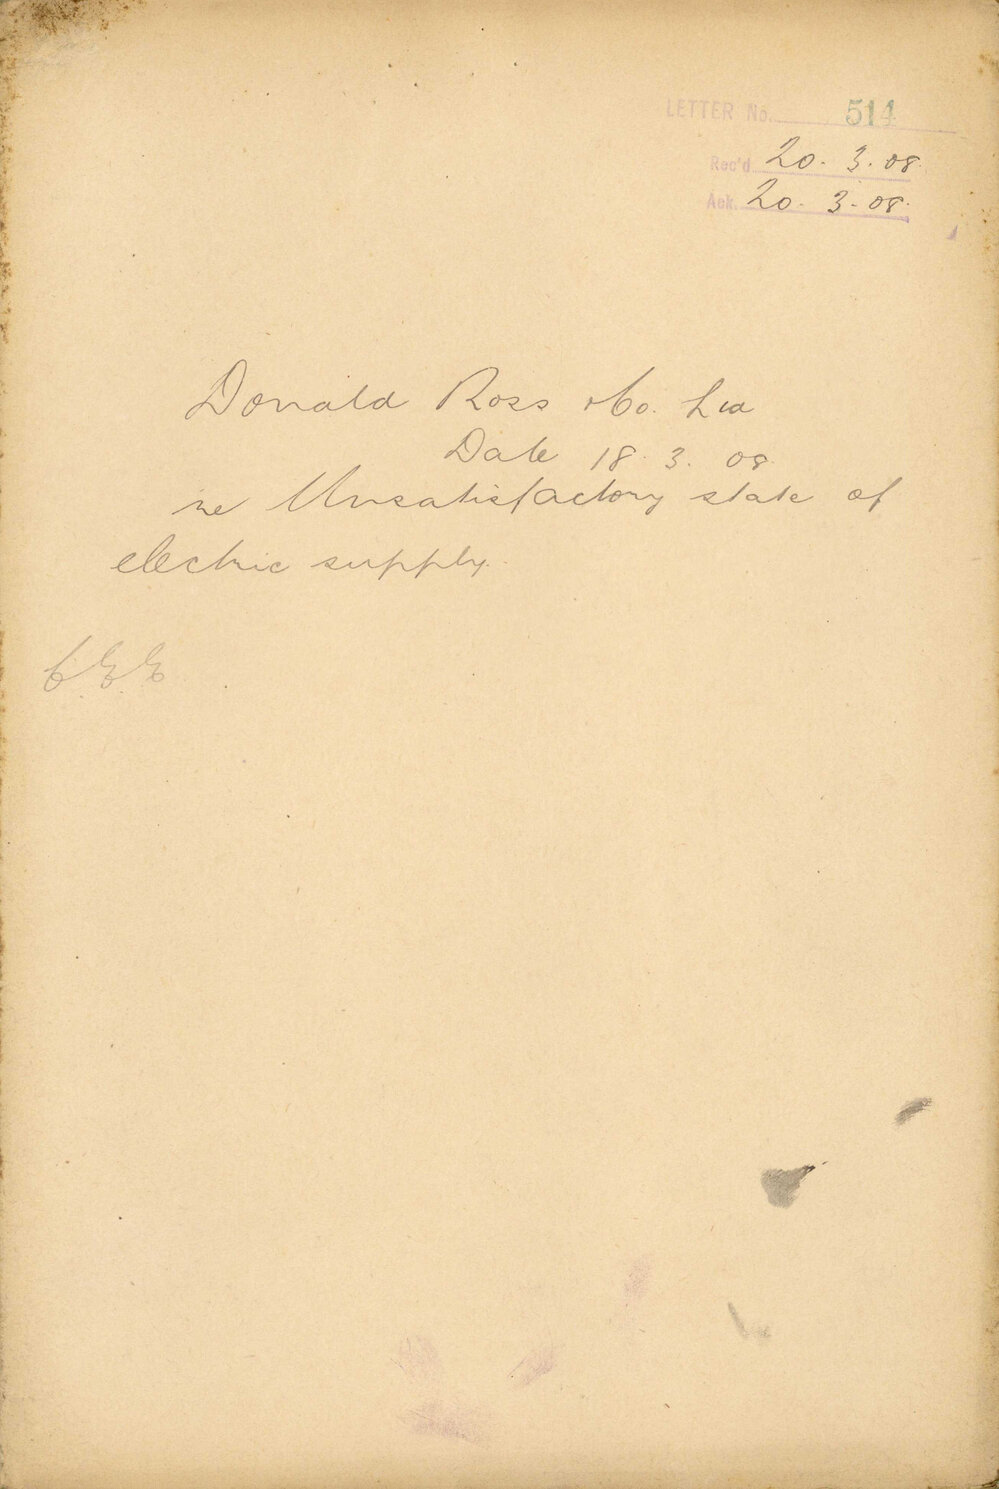 LETTER No. 514
Rec'd 20. 3. 08.
Ack. 20. 3. 08.
Donald Ross & Co. Ltd
Date 18. 3. 08
re Unsatisfactory state of
electric supply.
C.E.E.